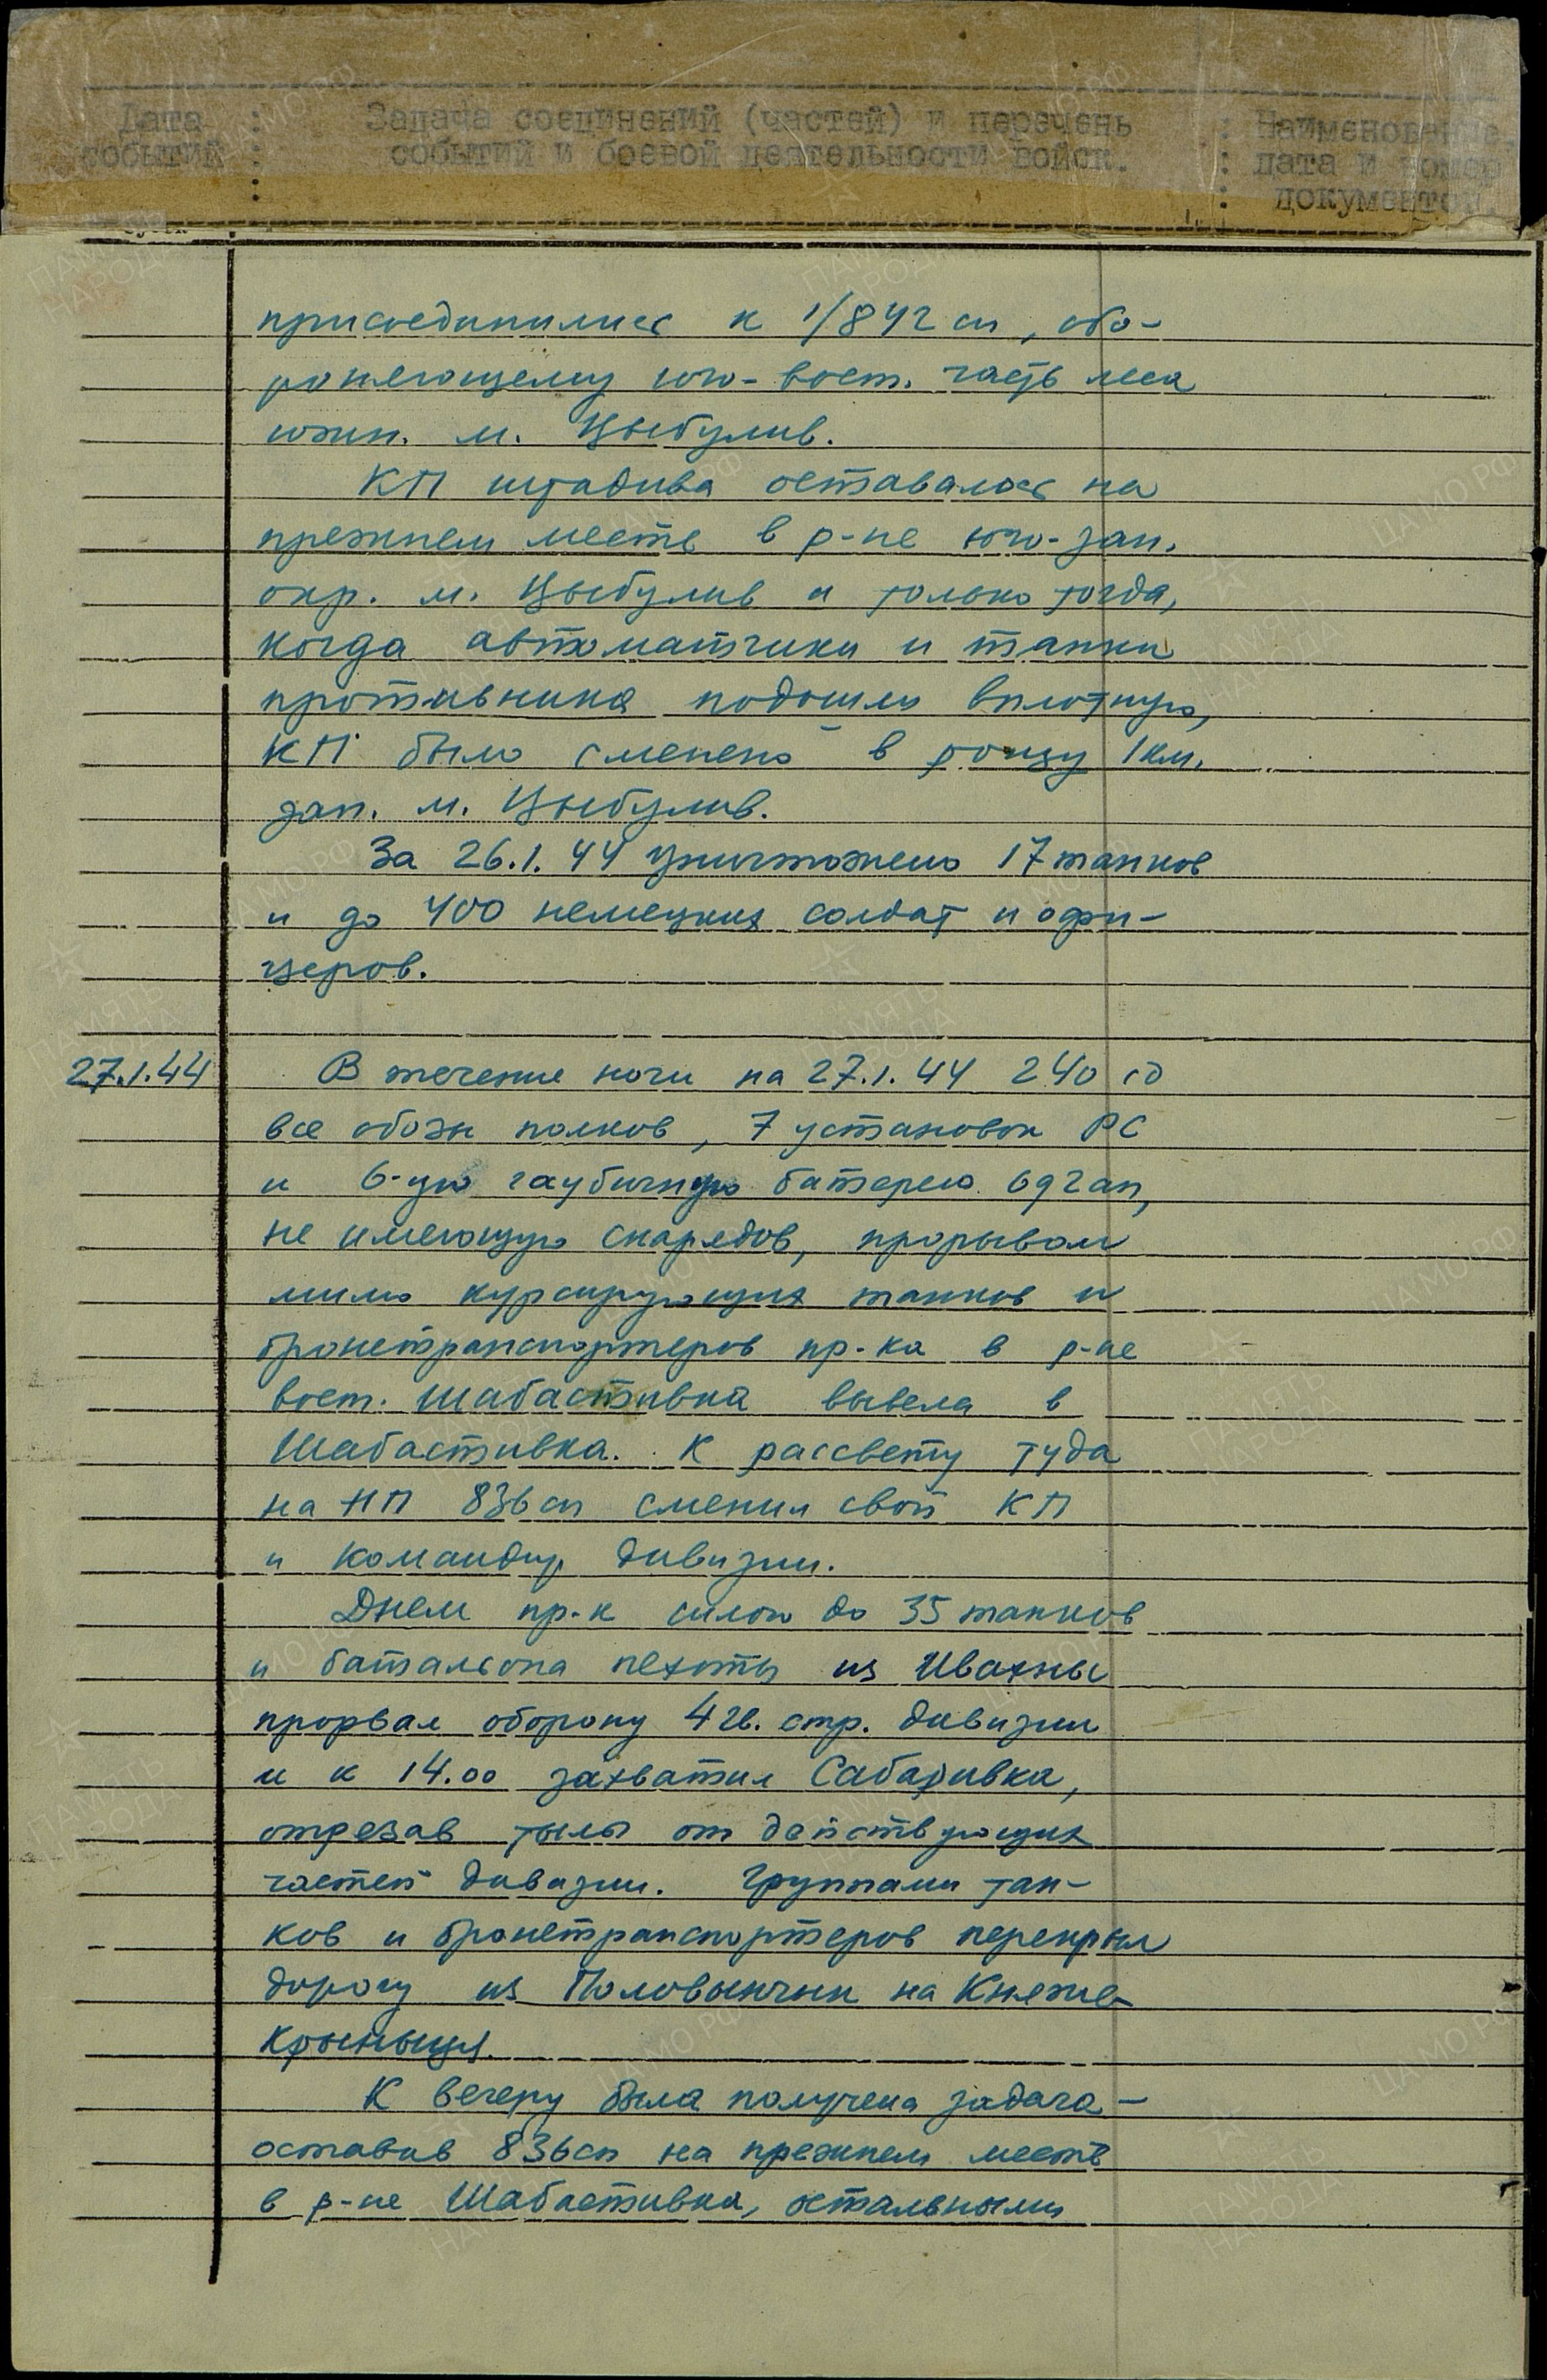 Дата : Задача соединений (частей) и перечень : Наименование,
событий : событий и боевой деятельности войск. : дата и номер
: : документов.
присоединились к 1/842 сп, обо-
роняющему юго-вост. часть леса
южн. м. Цыбулив.
КП штадива оставалось на
прежнем месте в р-не юго-зап.
окр. м. Цыбулив и только тогда,
когда автоматчики и танки
противника подошли вплотную,
КП было сменено в рощу 1 км.
зап. м. Цыбулив.
За 26.1.44 уничтожено 17 танков
и до 400 немецких солдат и офи-
церов.
27.1.44 В течение ночи на 27.1.44 240 сд
все обозы полков, 7 установок РС
и 6-ую гаубичную батарею 692 ап,
не имеющую снарядов, прорывом
мимо курсирующих танков и
бронетранспортеров пр-ка в р-не
вост. Шабастивка вывела в
Шабастивка. К рассвету туда
на НП 836 сп сменил свой КП
и командир дивизии.
Днем пр-к силою до 35 танков
и батальона пехоты из Ивахны
прорвал оборону 4 гв. стр. дивизии
и к 14.00 захватил Сабаривка,
отрезав тылы от действующих
частей дивизии. Группами тан-
ков и бронетранспортеров перекрыл
дорогу из Половынчик на Княже-
Крыныця.
К вечеру была получена задача -
оставив 836 сп на прежнем месте
в р-не Шабастивка, остальными